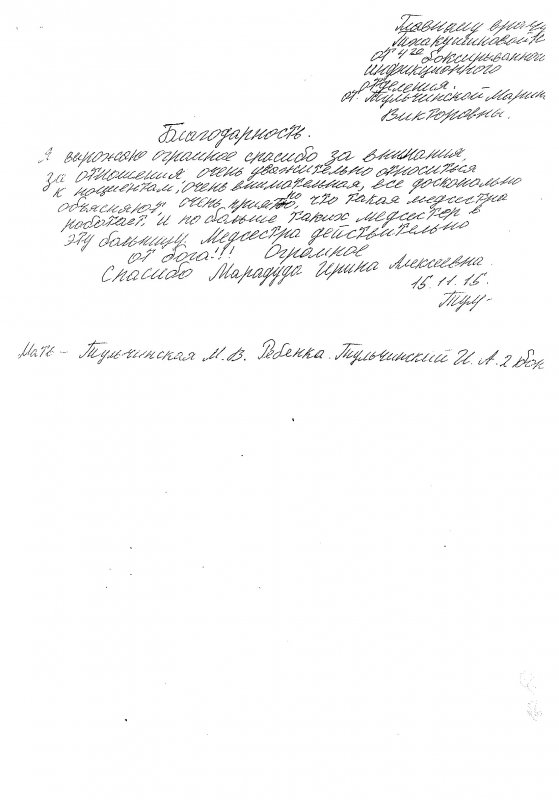 Главному врачу
от 4го боксированной
инфикционного
отделения.
от. Тульчинской Марины
Викторовны.
Благодарность.
Я выражаю огромное спасибо за внимания,
за отношения, очень уважительно относиться
к пациентам, очень внимательная, все досконально
объясняют, очень приятно, что такая медсестра
работает, и по больше таких медсестёр в
эту больницу. Медсестра действительно
от бога!!! Огромное
Спасибо Марадуда Ирина Алексеевна.
15.11.15.
Тул-
Мать - Тульчинская М.В. Ребенка. Тульчинский И.А. 2 бок